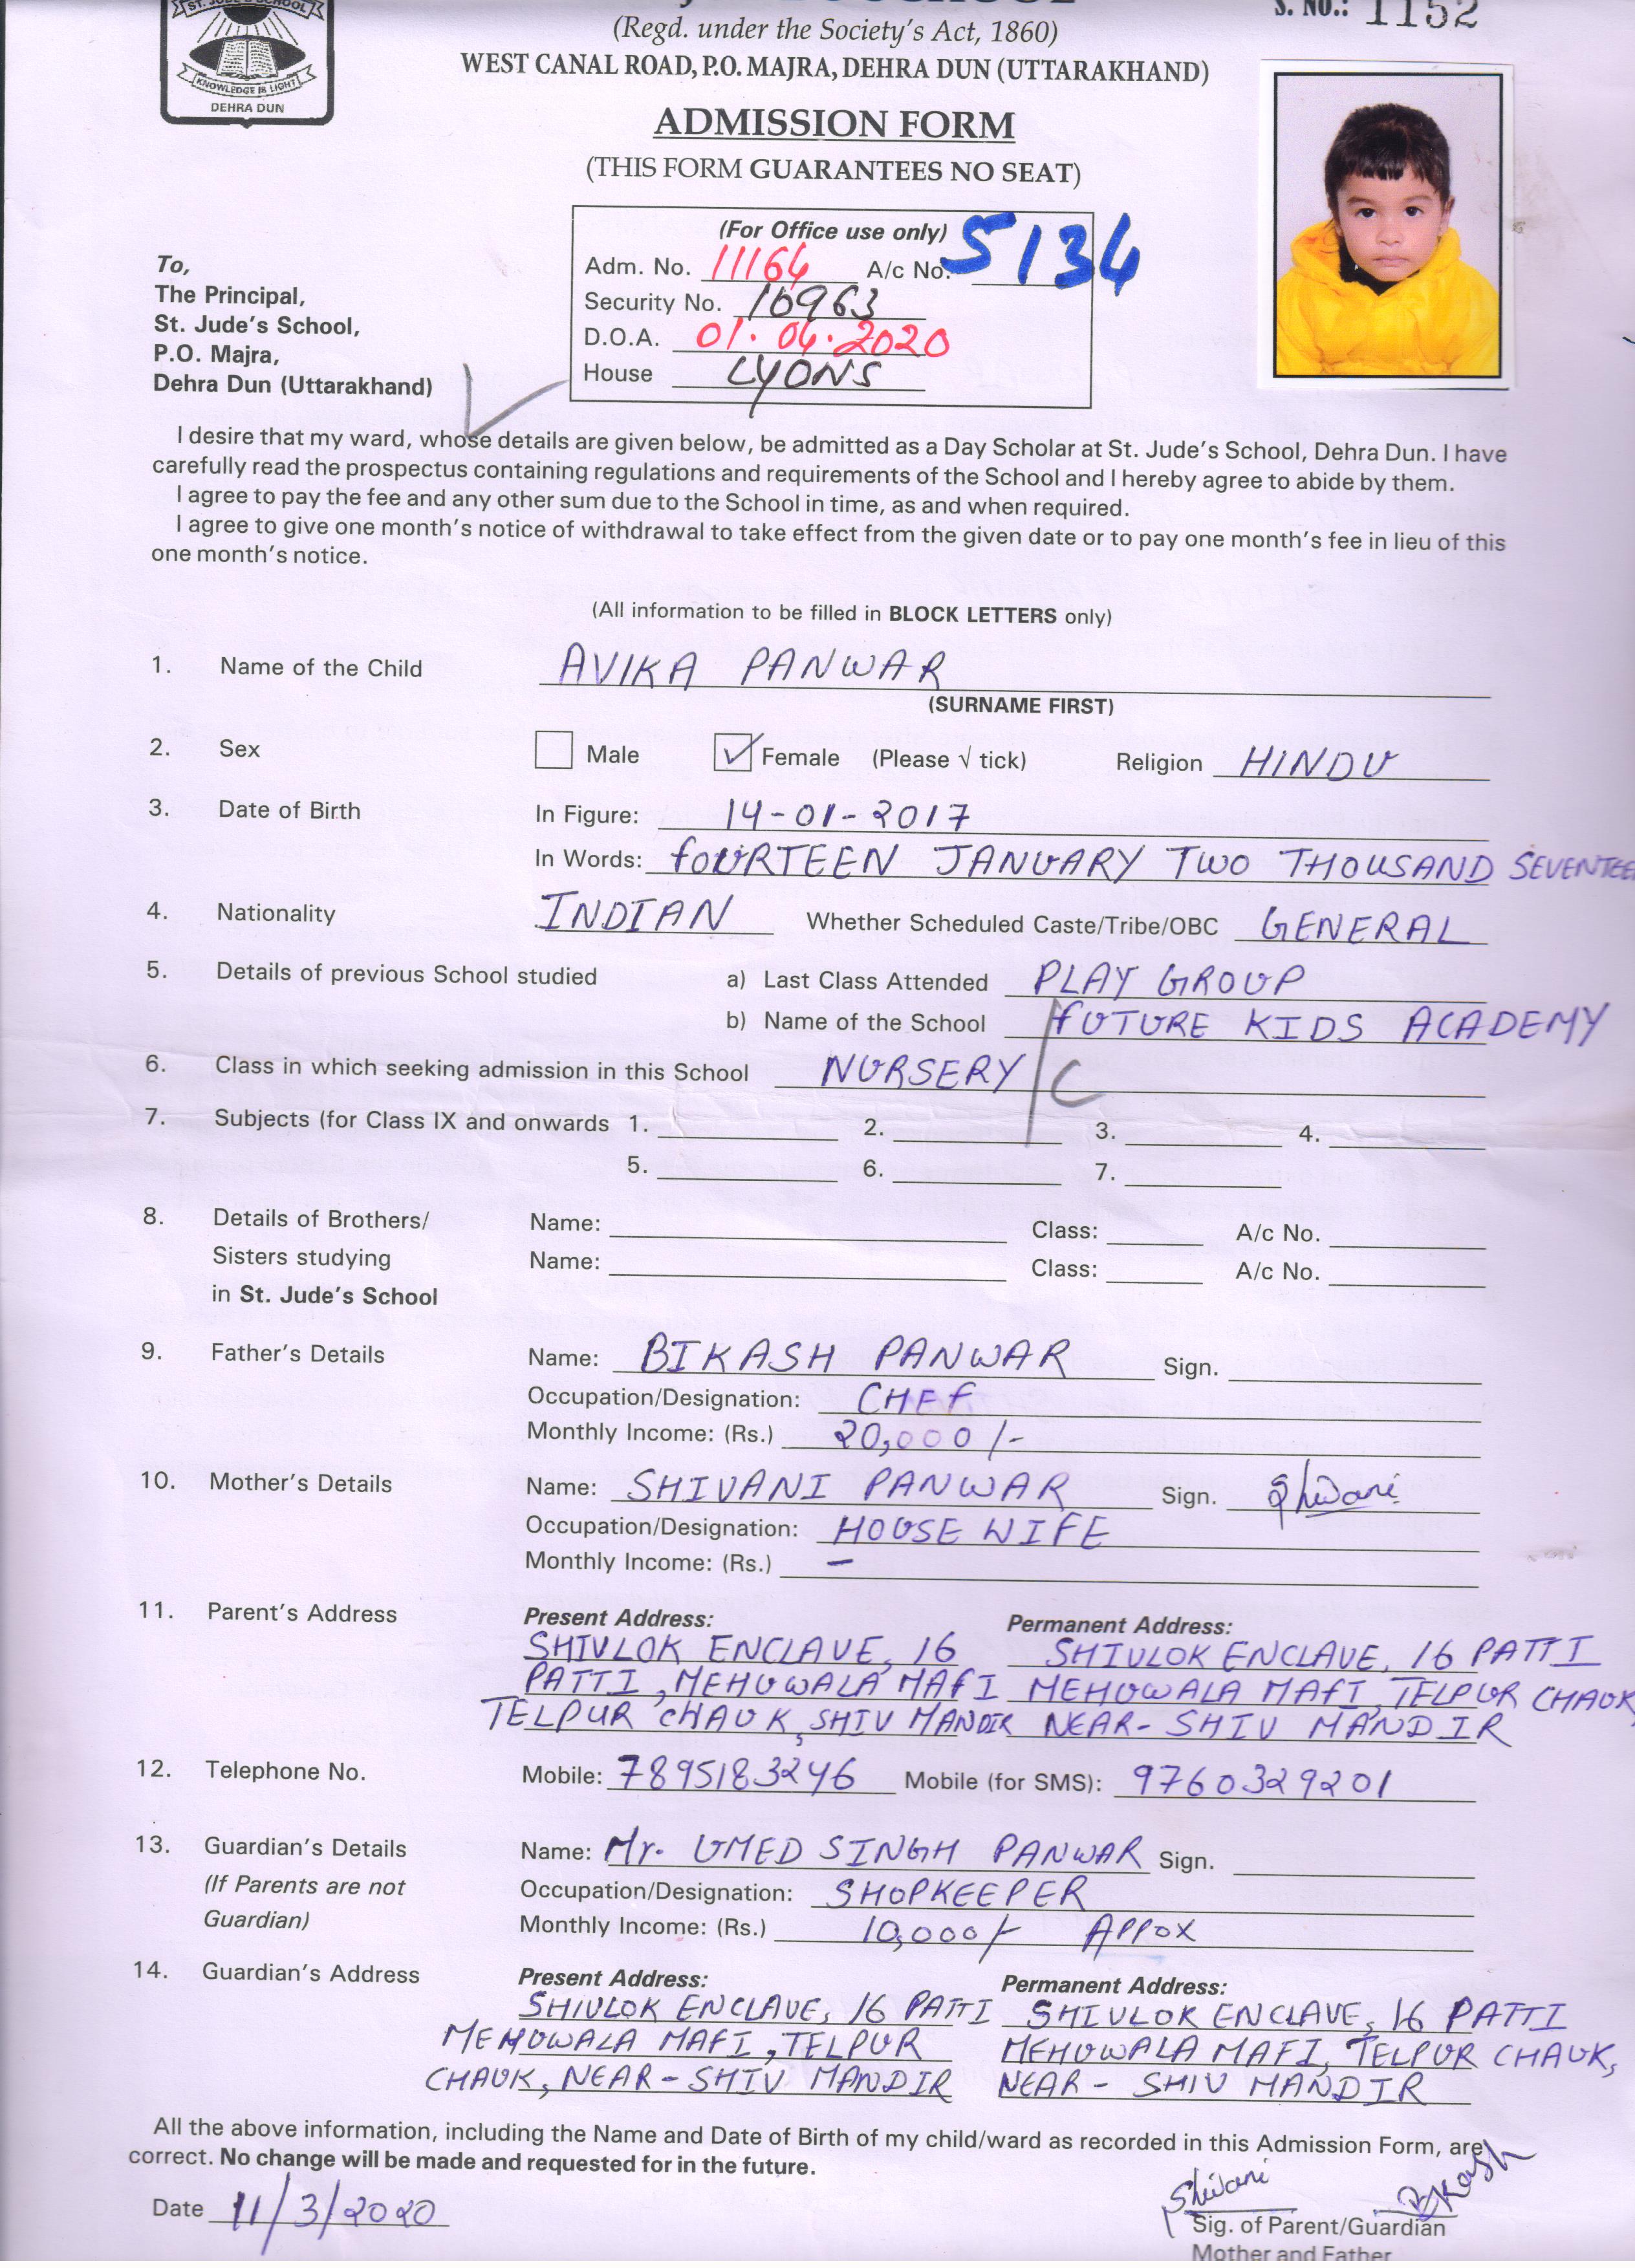 ST. JUDE'S SCHOOL
KNOWLEDGE IS LIGHT
DEHRA DUN
S. NO.: 1152
(Regd. under the Society's Act, 1860)
WEST CANAL ROAD, P.O. MAJRA, DEHRA DUN (UTTARAKHAND)
ADMISSION FORM
(THIS FORM GUARANTEES NO SEAT)
(For Office use only)
Adm. No. 11164 A/c No. 5134
Security No. 10963
D.O.A. 01.04.2020
House LYONS
To,
The Principal,
St. Jude's School,
P.O. Majra,
Dehra Dun (Uttarakhand)
I desire that my ward, whose details are given below, be admitted as a Day Scholar at St. Jude's School, Dehra Dun. I have
carefully read the prospectus containing regulations and requirements of the School and I hereby agree to abide by them.
I agree to pay the fee and any other sum due to the School in time, as and when required.
I agree to give one month's notice of withdrawal to take effect from the given date or to pay one month's fee in lieu of this
one month's notice.
(All information to be filled in BLOCK LETTERS only)
1. Name of the Child AVIKA PANWAR
(SURNAME FIRST)
2. Sex Male ✓ Female (Please √ tick) Religion HINDU
3. Date of Birth In Figure: 14-01-2017
In Words: fOURTEEN JANUARY TWO THOUSAND SEVENTEEN
4. Nationality INDIAN Whether Scheduled Caste/Tribe/OBC GENERAL
5. Details of previous School studied a) Last Class Attended PLAY GROUP
b) Name of the School fUTURE KIDS ACADEMY
6. Class in which seeking admission in this School NURSERY / C
7. Subjects (for Class IX and onwards 1. 2. 3. 4.
5. 6. 7.
8. Details of Brothers/ Name: Class: A/c No.
Sisters studying Name: Class: A/c No.
in St. Jude's School
9. Father's Details Name: BIKASH PANWAR Sign.
Occupation/Designation: CHEf
Monthly Income: (Rs.) 20,000/-
10. Mother's Details Name: SHIVANI PANWAR Sign. Shivani
Occupation/Designation: HOUSE WIFE
Monthly Income: (Rs.) –
11. Parent's Address Present Address: Permanent Address:
SHIVLOK ENCLAVE, 16 SHIVLOK ENCLAVE, 16 PATTI
PATTI, MEHUWALA MAfI MEHUWALA MAfI, TELPUR CHAUK,
TELPUR CHAUK, SHIV MANDIR NEAR- SHIV MANDIR
12. Telephone No. Mobile: 7895183246 Mobile (for SMS): 9760329201
13. Guardian's Details Name: Mr. UMED SINGH PANWAR Sign.
(If Parents are not Occupation/Designation: SHOPKEEPER
Guardian) Monthly Income: (Rs.) 10,000/- APPOX
14. Guardian's Address Present Address: Permanent Address:
SHIVLOK ENCLAVE, 16 PATTI SHIVLOK ENCLAVE, 16 PATTI
MEHUWALA MAFI, TELPUR MEHUWALA MAFI, TELPUR CHAUK,
CHAUK, NEAR-SHIV MANDIR NEAR- SHIV MANDIR
All the above information, including the Name and Date of Birth of my child/ward as recorded in this Admission Form, are
correct. No change will be made and requested for in the future.
Shivani Bikash
Date 11/3/2020
Sig. of Parent/Guardian
Mother and Father